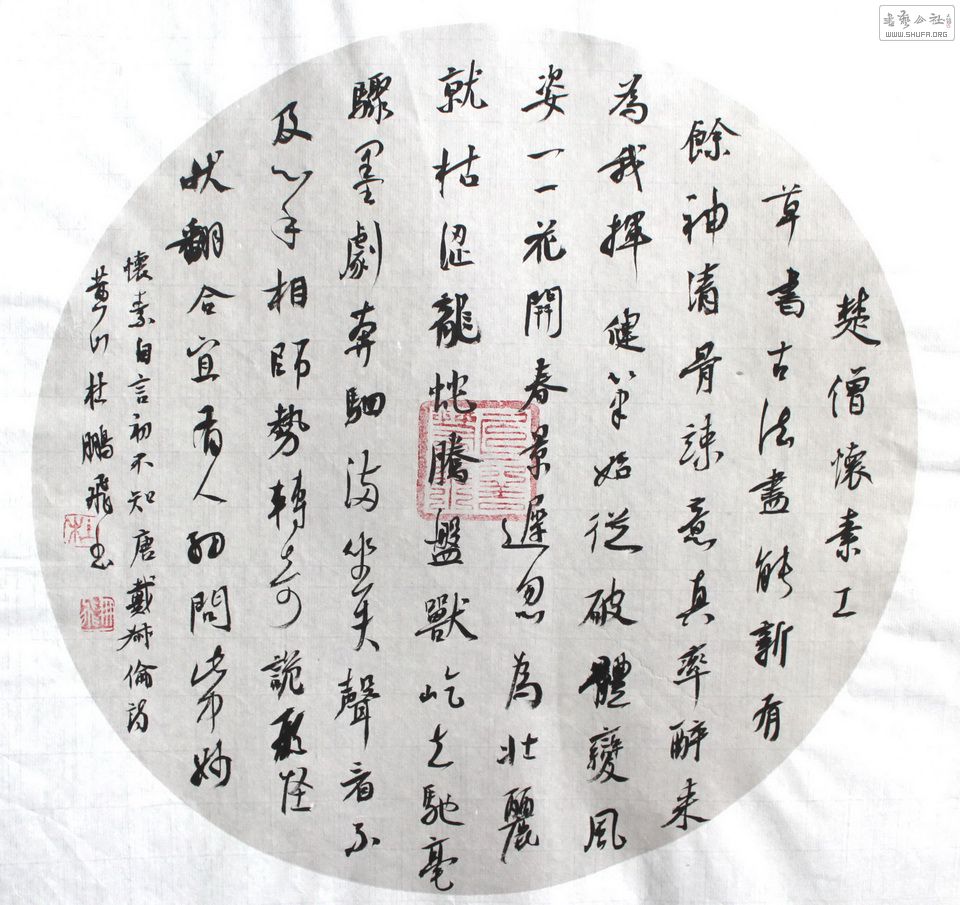 楚僧懷素工
草書古法盡能新有
餘神清骨竦意真率醉來
為我揮健筆始從破體變風
姿一一花開春景遲忽為壯麗
就枯澀龍蛇騰盤獸屹立馳毫
驟墨劇奔駟滿坐失聲看不
及心手相師勢轉奇詭形怪
狀翻合宜有人細問此中妙
懷素自言初不知唐戴叔倫詩
黄山杜鵬飛书
杜
書藝公社
WWW.SHUFA.ORG